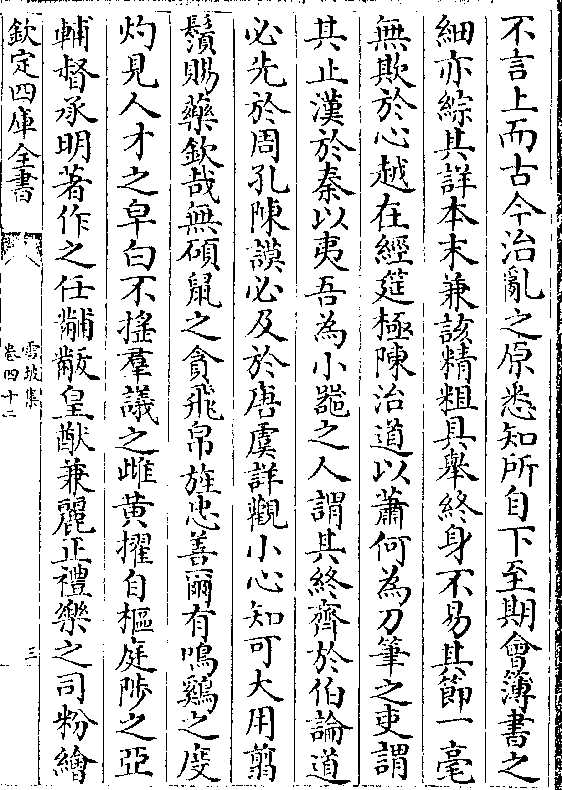 不言上而古今治亂之原悉知所自下至期會簿書之
細亦綜其詳本末兼該精粗具舉終身不易其節一毫
無欺於心越在經筵極陳治道以蕭何為刀筆之吏謂
其止漢於秦以夷吾為小器之人謂其終齊於伯論道
必先於周孔陳謨必及於唐虞詳觀小心知可大用翦
鬚賜藥欽哉無碩鼠之貪飛帛旌忠善爾有鳴鷄之度
灼見人才之皁白不搖羣議之雌黄擢自樞庭陟之亞
輔督承明著作之任黼黻皇猷兼麗正禮樂之司粉繪
欽定四庫全書
雪坡集
卷四十二
三